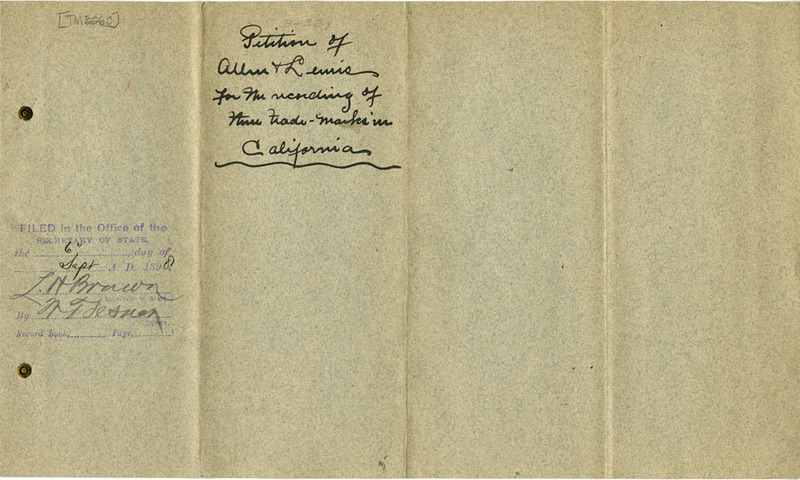 [TM2260]
Petition of
Allen & Lewis
for the recording of
three trade-marks in
California
FILED in the Office of the
SECRETARY OF STATE,
the 6" day of
Sept A. D. 1898
L. H. Brown
By
Record Book, Page